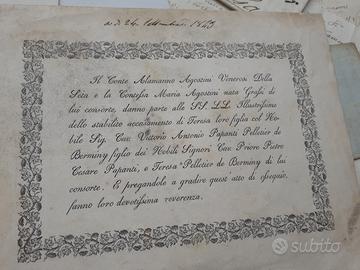 a dì 24 Settembre 1843
Il Conte Alamanno Agostini Venerosi Della
Seta e la Contessa Maria Agostini nata Grassi di
lui consorte, danno parte alle SS. LL. Illustrissime
dello stabilito accasamento di Teresa loro figlia col No-
bile Sig. Cav. Vittorio Antonio Papanti Pelletier de
Berminy figlio dei Nobili Signori Cav. Priore Pietro
Cesare Papanti, e Teresa Pelletier de Berminy di lui
consorte. E pregandole a gradire quest'atto di ossequio,
fanno loro devotissima reverenza.
subito